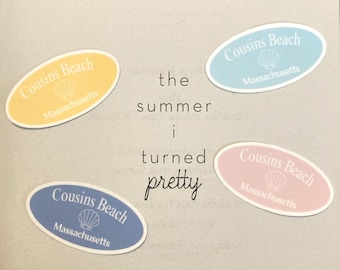 Cousins Beach
Massachusetts
Cousins Beach
Massachusetts
the
summer
i
turned
pretty
Cousins Beach
Massachusetts
Cousins Beach
Massachusetts